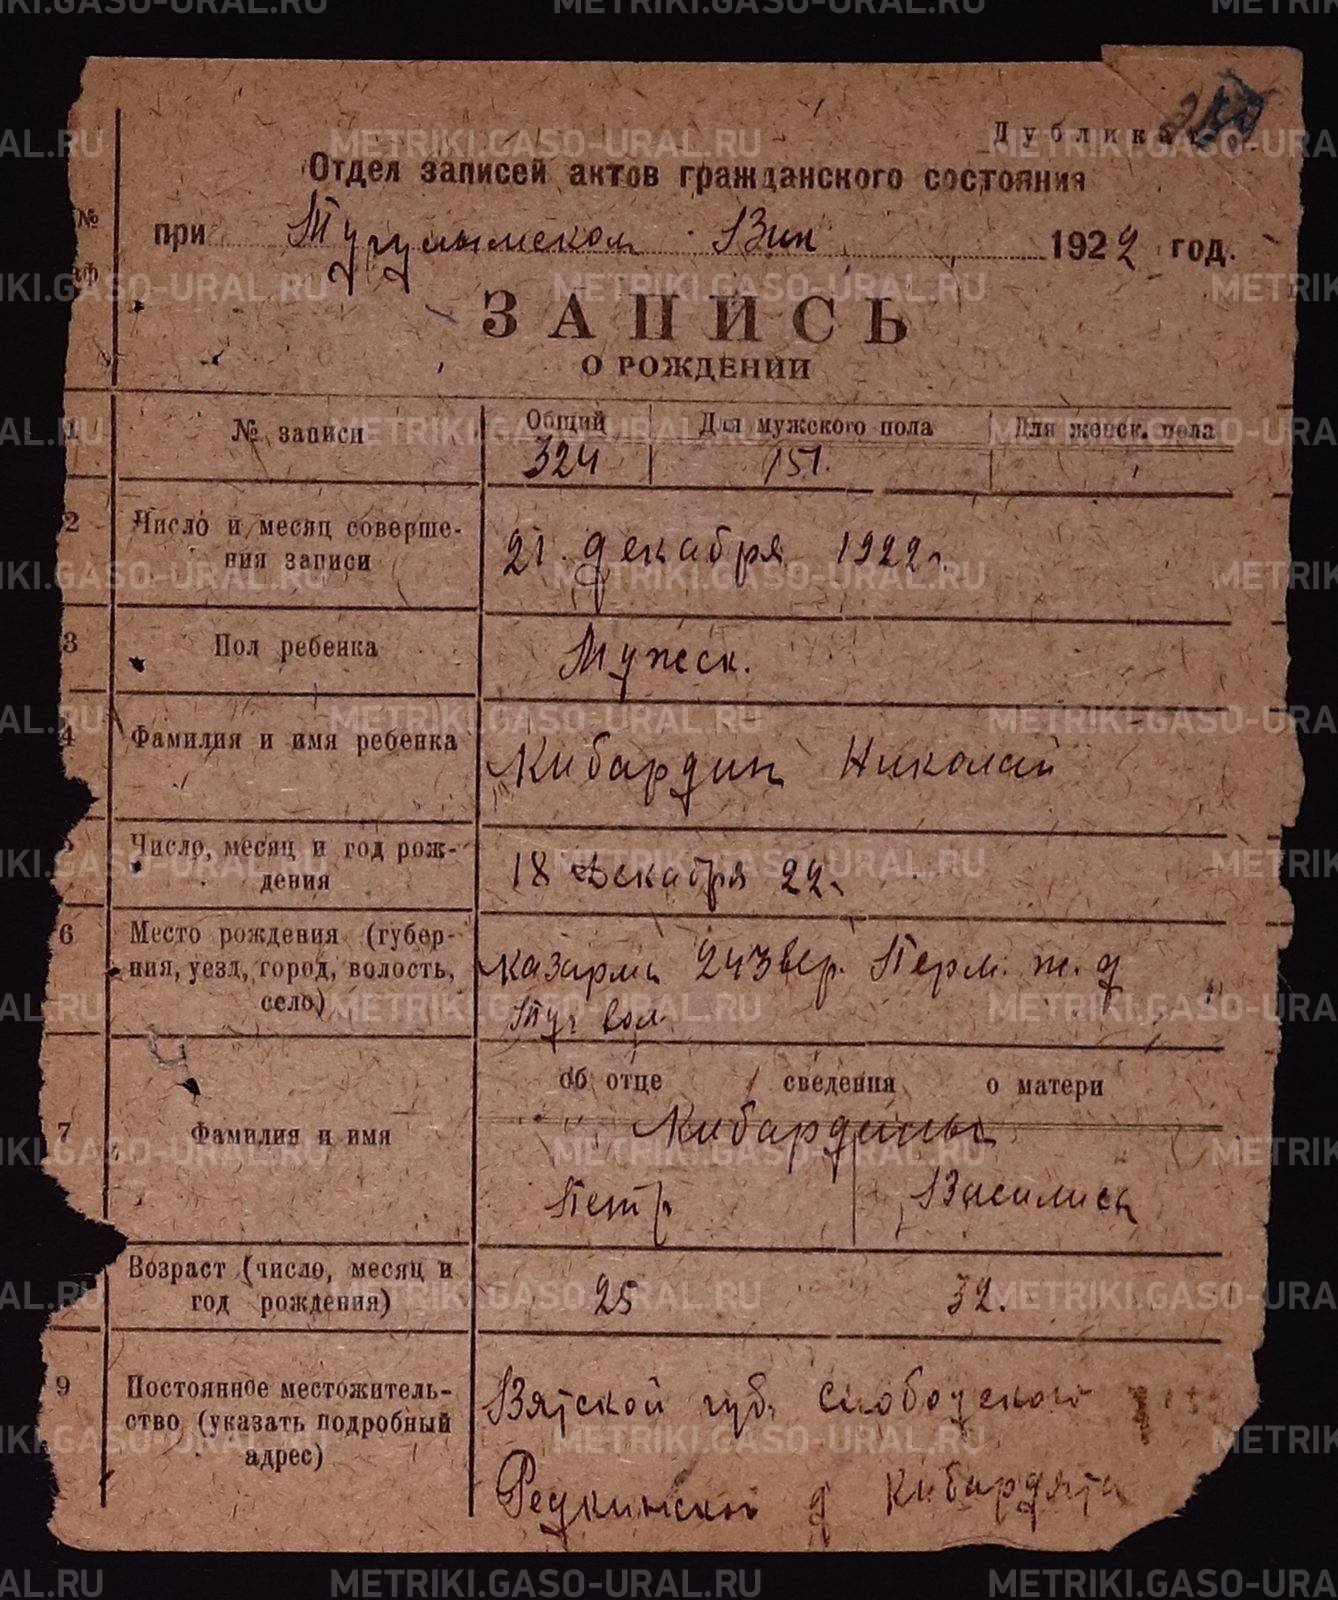 Дубликат
Отдел записей актов гражданского состояния
при Тугулымском Вик 1922 год.
№
ЗАПИСЬ
О РОЖДЕНИИ
1 № записи Общий Для мужского пола Для женск. пола
324 151.
2 Число и месяц соверше-
ния записи
21 декабря 1922 г.
3 Пол ребенка Мужск.
4 Фамилия и имя ребенка Кибардин Николай
Число, месяц и год рож-
дения
18 Декабря 22 г.
6 Место рождения (губер-
ния, уезд, город, волость,
село)
казарма 243 вер. Перм. ж. д
Туг вол.
об отце сведения о матери
7 Фамилия и имя Кибардины
Петр Василиса
Возраст (число, месяц и
год рождения)
25 32.
9 Постоянное местожитель-
ство (указать подробный
адрес)
Вятской губ. Слободского
Редкинской д Кибардята
METRIKI.GASO-URAL.RU